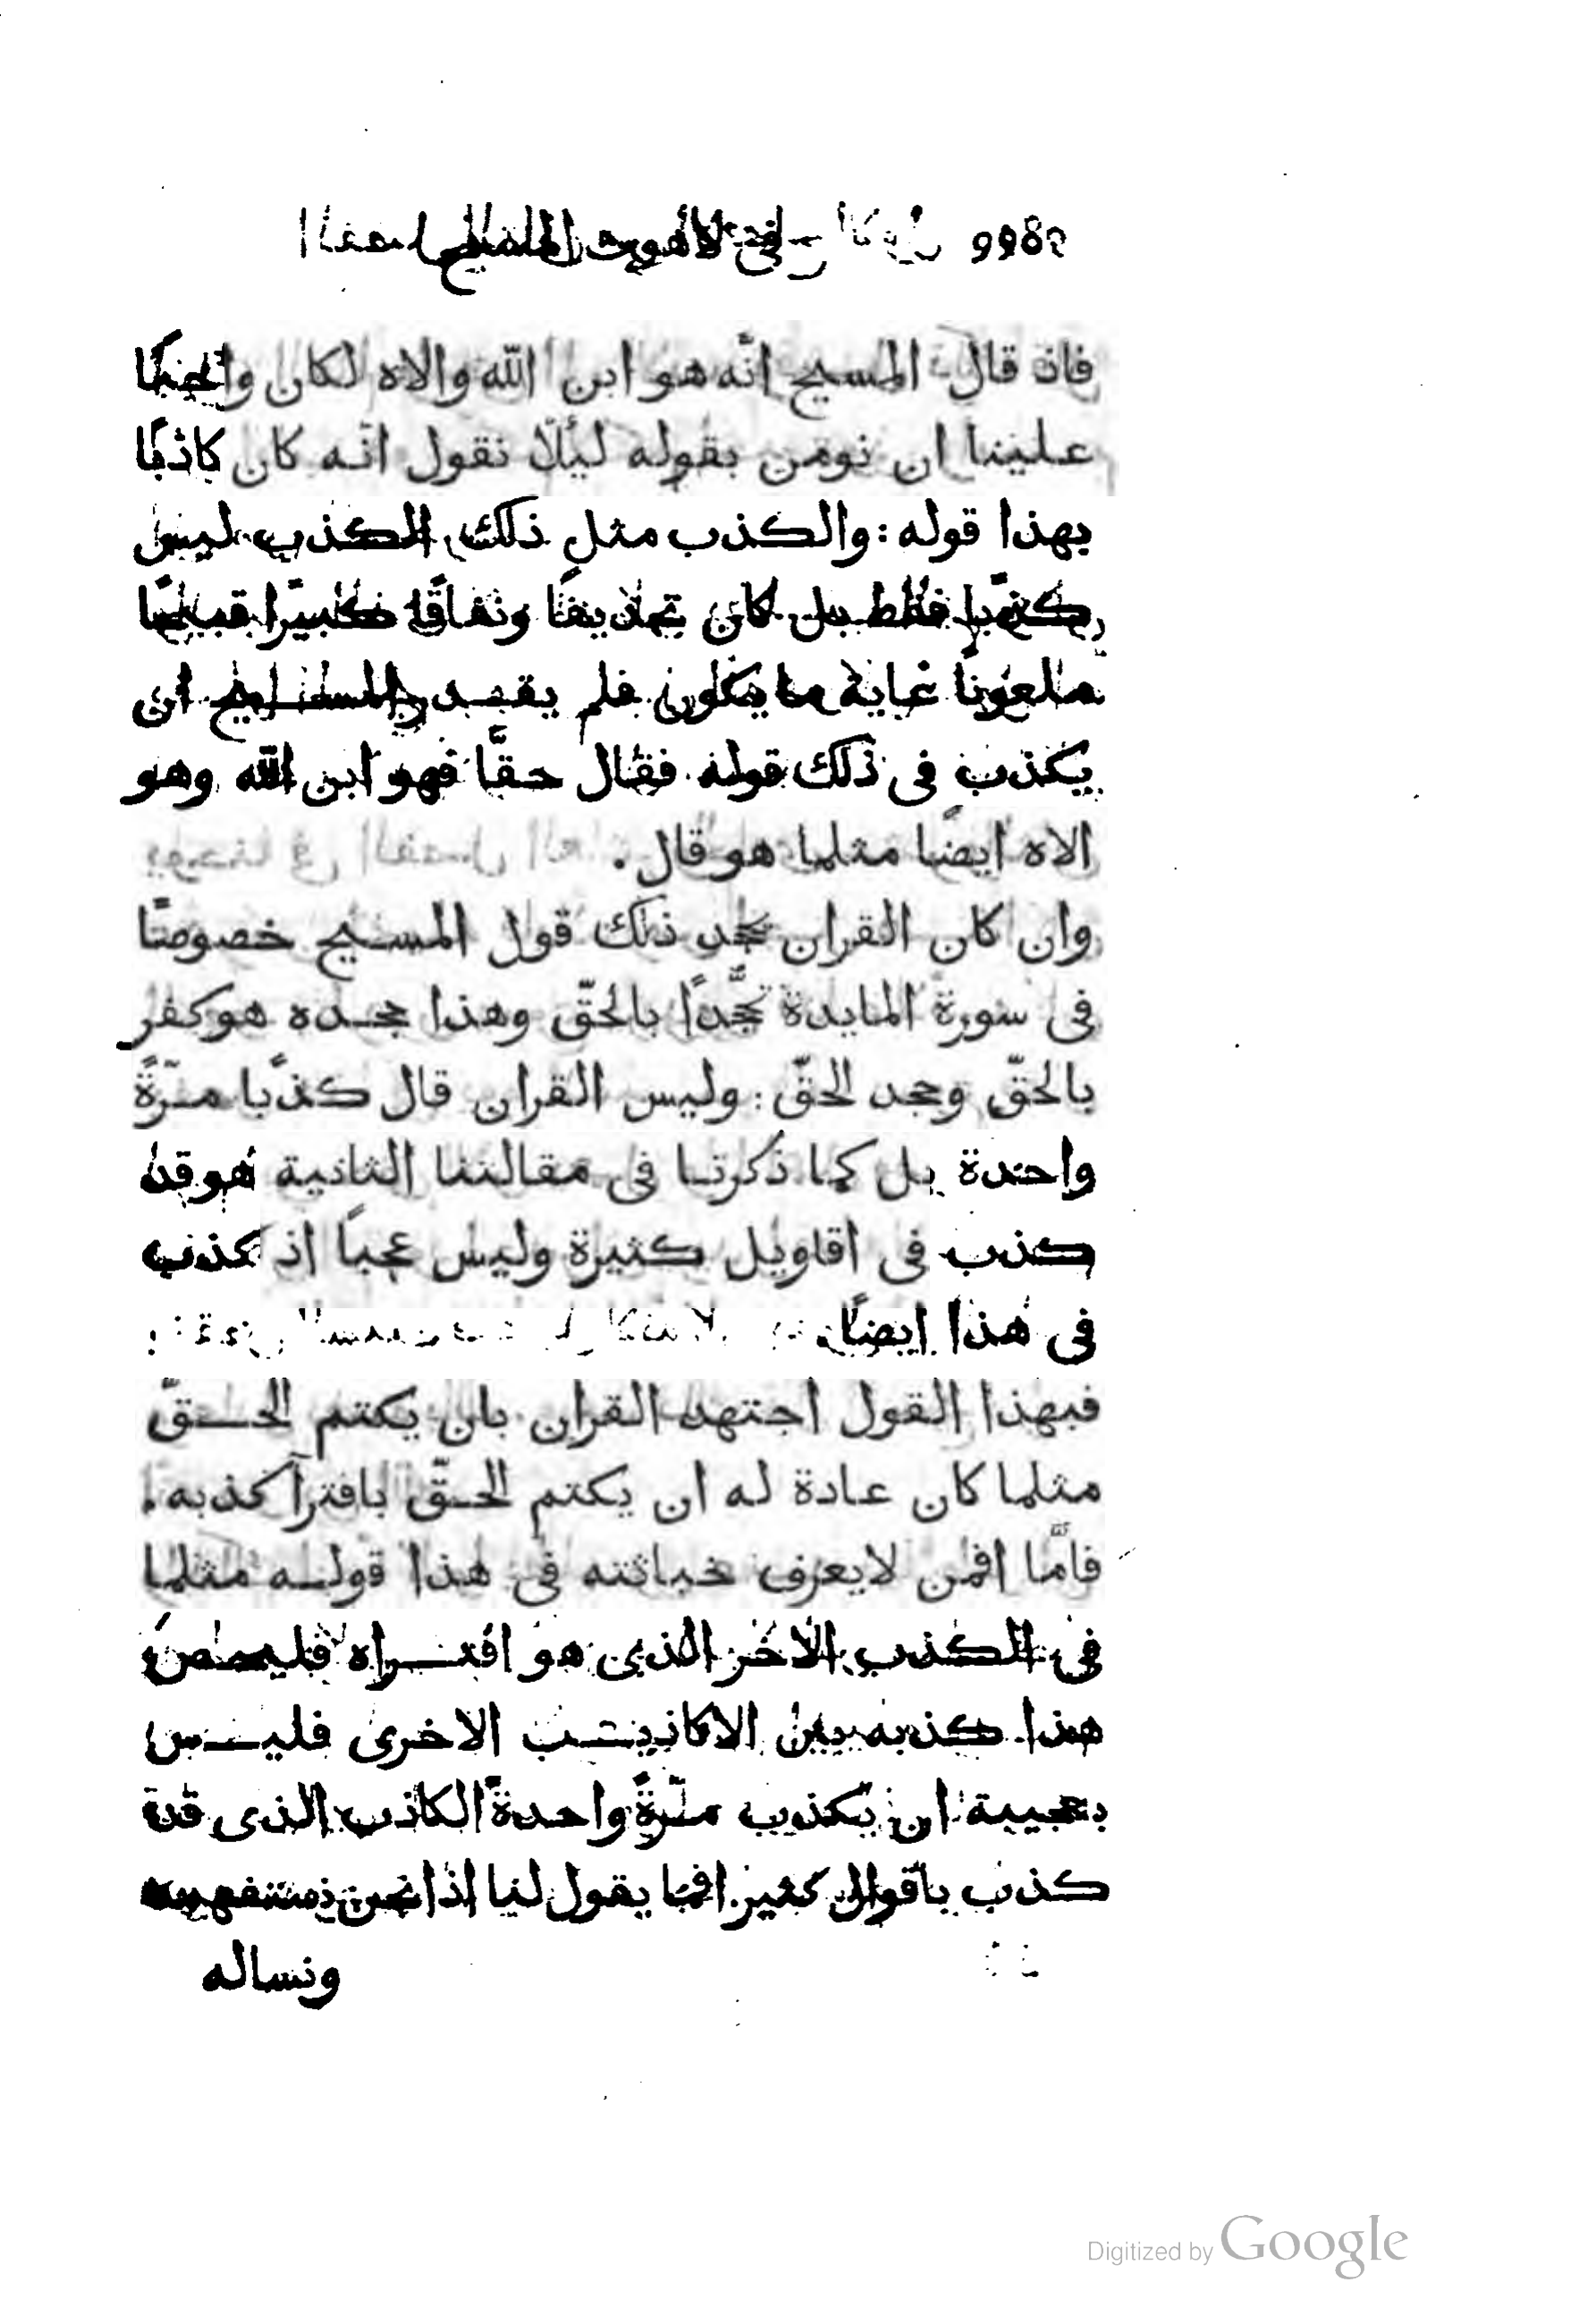 في لاهوت المسيح
فاذ قال المسيح انّه هو ابن اللّه والاه لكان واجبًا
علينا ان نومن بقوله ليُلّا نقول انّه كان كاذبًا
بهذا قوله : والكذب مثل ذلك الكذب ليس
كذبًا فقط بل كان تجديفًا ونفاقًا كبيرًا قبيحًا
ملعونًا غاية ما يكون فلم يقدر المسيح ان
يكذب فى ذلك قوله فقال حقًّا فهو ابن اللّه وهو
الاه ايضًا مثلما هو قال .
وان كان القران جحد ذلك قول المسيح خصوصًا
فى سورة المايدة بالحقّ وهذا جحده هو كفر
بالحقّ وجحد الحقّ : وليس القران قال كذبًا مرّةً
واحدة بل كما ذكرنا فى مقالتنا الثانية هو قد
كذب فى اقاويل كثيرة وليس عجبًا اذ كذب
فى هذا ايضًا .
فبهذا القول اجتهد القران بان يكتم الحقّ
مثلما كان عادة له ان يكتم الحقّ بافترآ كذبه .
فامّا افمن لا يعرف خباثته فى هذا قوله مثلما
فى الكذب الاخر الذى هو افتراه
هذا كذبه بين الاكاذيب الاخرى فليس
بعجيبة ان يكذب مرّةً واحدةً الكاذب الذى قد
كذب باقوال كثير افما يقول لنا اذا نحن نستفهمه
ونساله
Digitized by Google